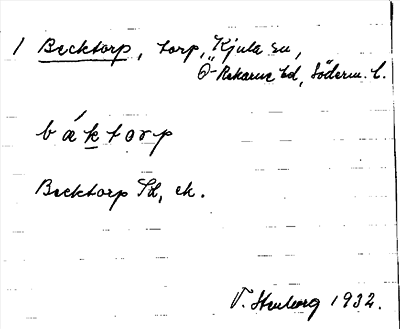 1 Becktorp, torp, Kjula sn,
Ö-Rekarne hd, Söderm. l.
b á k torp
Becktorp Sd, ek.
V. Stenborg 1932.